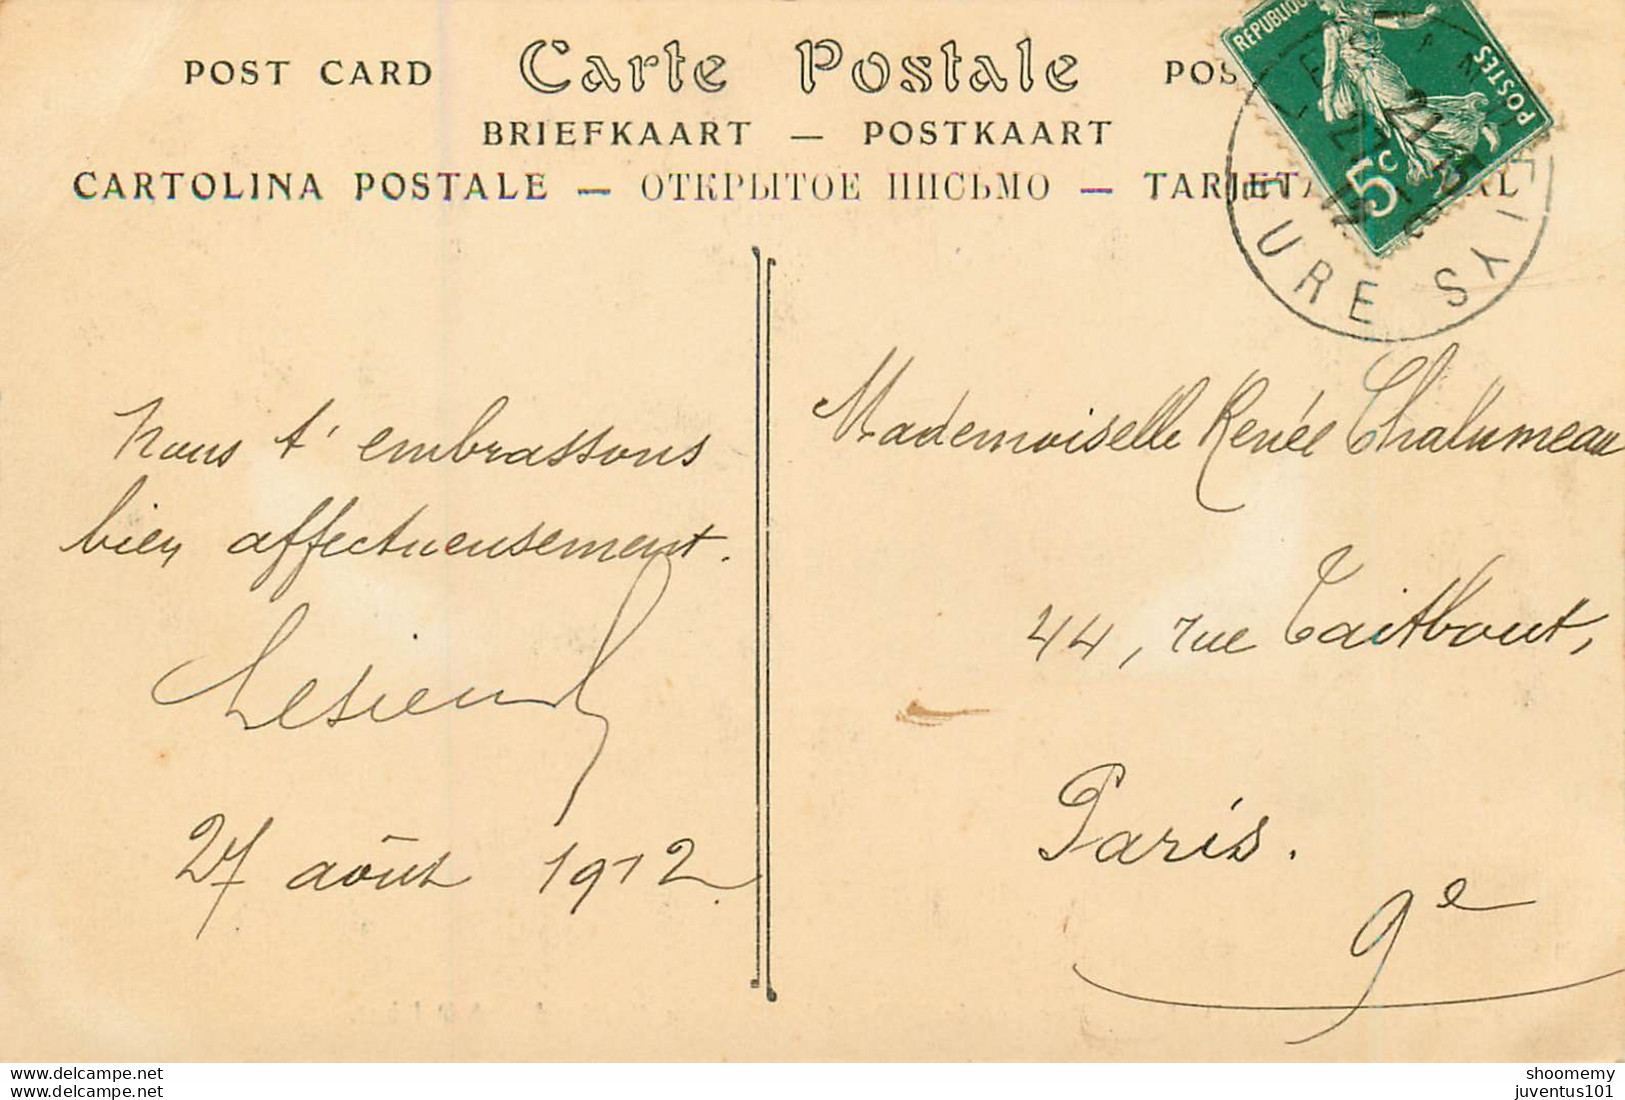 POST CARD Carte Postale POS
BRIEFKAART — POSTKAART
CARTOLINA POSTALE — ОТКРЫТОЕ ПИСЬМО — TARJETA
REPUBLIQUE
POSTES
5c
URE SY
Nous t'embrassons
bien affectueusement.
27 août 1912
Mademoiselle Renée Chalumeau
44, rue Taitbout,
Paris.
9e
delcampe.net
delcampe.net
shoomemy
juventus101